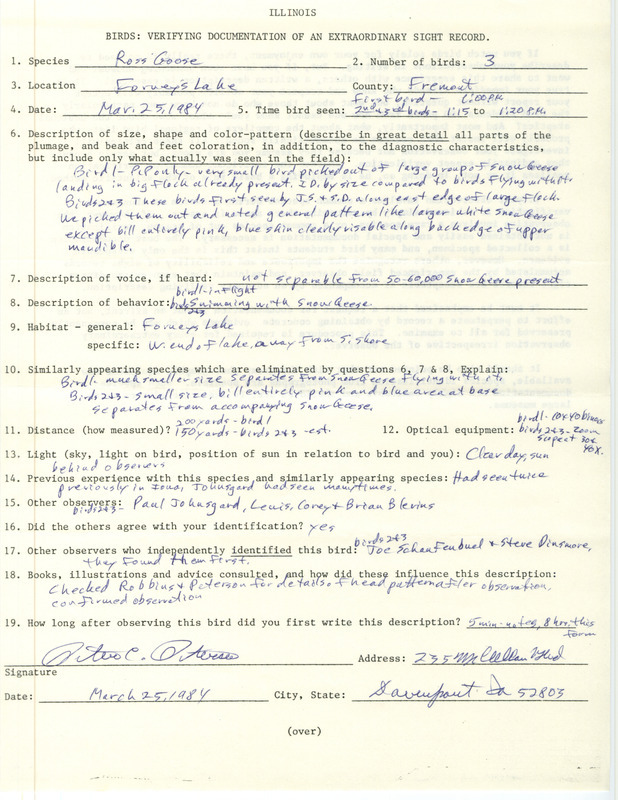 ILLINOIS
BIRDS: VERIFYING DOCUMENTATION OF AN EXTRAORDINARY SIGHT RECORD.
1. Species Ross' Goose 2. Number of birds: 3
3. Location Forneys Lake County: Fremont
4. Date: Mar. 25, 1984 5. Time bird seen: First bird - 1:00 P.M. 2nd & 3rd birds - 1:15 to 1:20 P.M.
6. Description of size, shape and color-pattern (describe in great detail all parts of the
plumage, and beak and feet coloration, in addition, to the diagnostic characteristics,
but include only what actually was seen in the field):
Bird 1 - P.P. only - very small bird picked out of large group of snow Geese
landing in big flock already present. I.D. by size compared to birds flying with it.
Birds 2&3 These birds first seen by J.S. & S.D. along east edge of large flock.
We picked them out and noted general pattern like larger white Snow Geese
except bill entirely pink, blue skin clearly visable along back edge of upper
mandible.
7. Description of voice, if heard: not separable from 50-60,000 Snow Geese present
8. Description of behavior: bird 1 - in flight birds 2&3 Swimming with Snow Geese.
9. Habitat - general: Forneys Lake
specific: W. end of lake, away from S. shore
10. Similarly appearing species which are eliminated by questions 6, 7 & 8, Explain:
Bird 1 - much smaller size separates from Snow Geese flying with it.
Birds 2&3 - small size, bill entirely pink and blue area at base
separates from accompanying Snow Geese.
11. Distance (how measured)? 200 yards - bird 1 150 yards - birds 2&3 - est. 12. Optical equipment: bird 1 - 10x40 binocs birds 2&3 - zoom scope at 30x 40x.
13. Light (sky, light on bird, position of sun in relation to bird and you): Clear day, sun
behind observers
14. Previous experience with this species and similarly appearing species: Had seen twice
previously in Iowa, Johnsgard had seen many times.
15. Other observers: birds 2&3 - Paul Johnsgard, Lewis, Corey & Brian Blevins
16. Did the others agree with your identification? yes
17. Other observers who independently identified this bird: birds 2&3 Joe Schaufenbuel & Steve Dinsmore,
they found them first.
18. Books, illustrations and advice consulted, and how did these influence this description:
Checked Robbins & Peterson for details of head pattern after observation,
confirmed observation
19. How long after observing this bird did you first write this description? 5 min - notes, 8 hrs. this
form
Peter C. Petersen Address: 235 McClellan Blvd
Signature
Date: March 25, 1984 City, State: Davenport Ia 52803
(over)